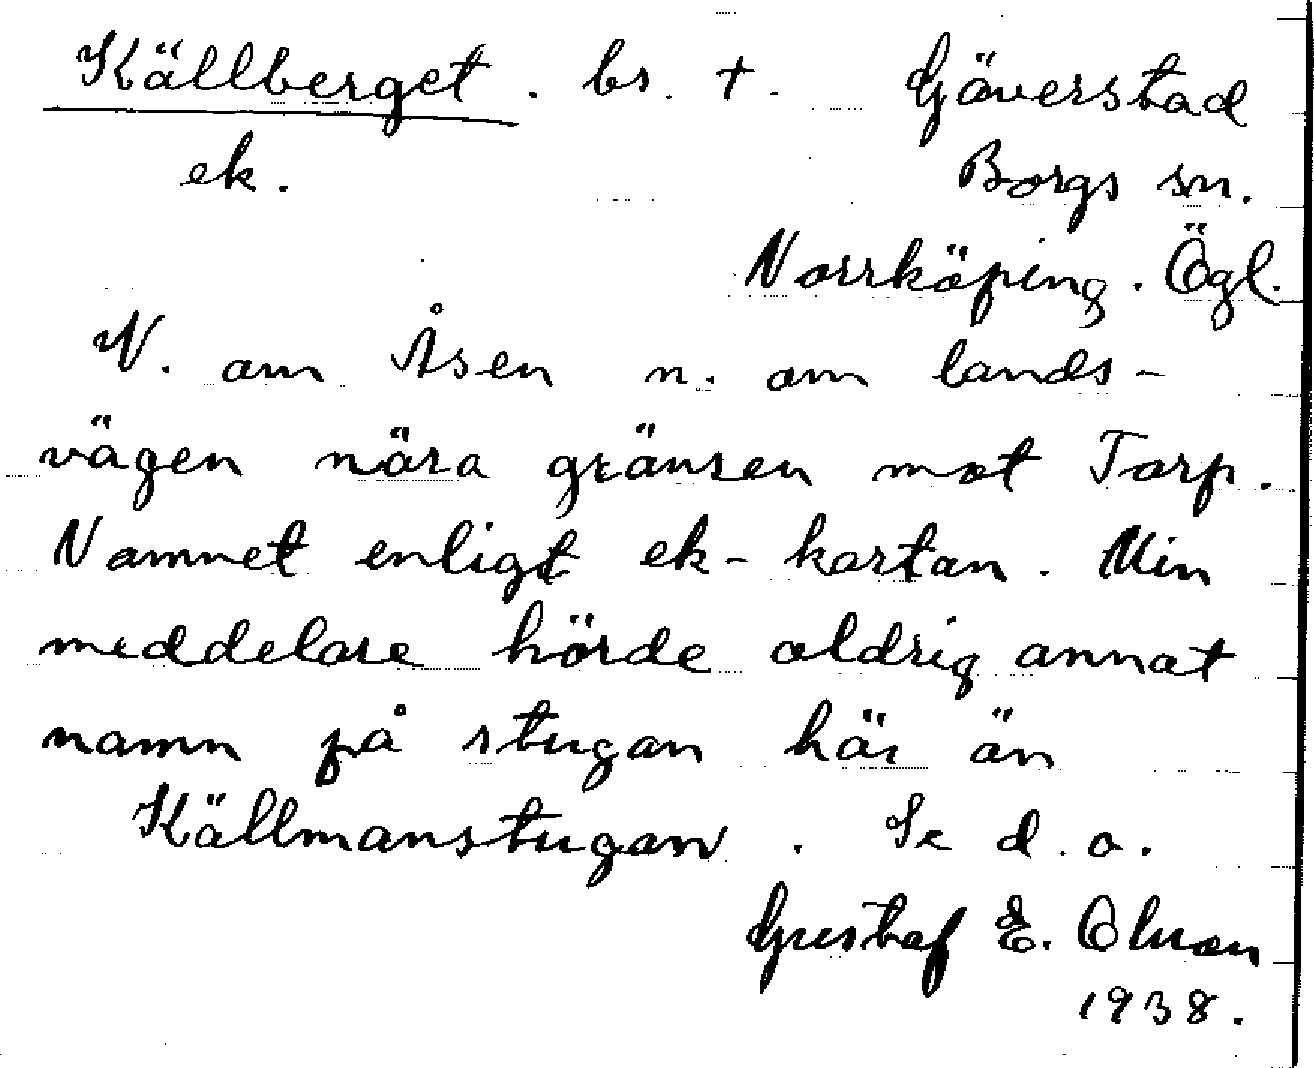 Källberget. bs. †. Gäverstad
ek. Borgs sn.
Norrköping. Ögl.
N. om Åsen n. om lands-
vägen nära gränsen mot Torp.
Namnet enligt ek-kartan. Min
meddelare hörde aldrig annat
namn på stugan här än
Källmanstugan. Se d. o.
Gustaf E. Olson
1938.